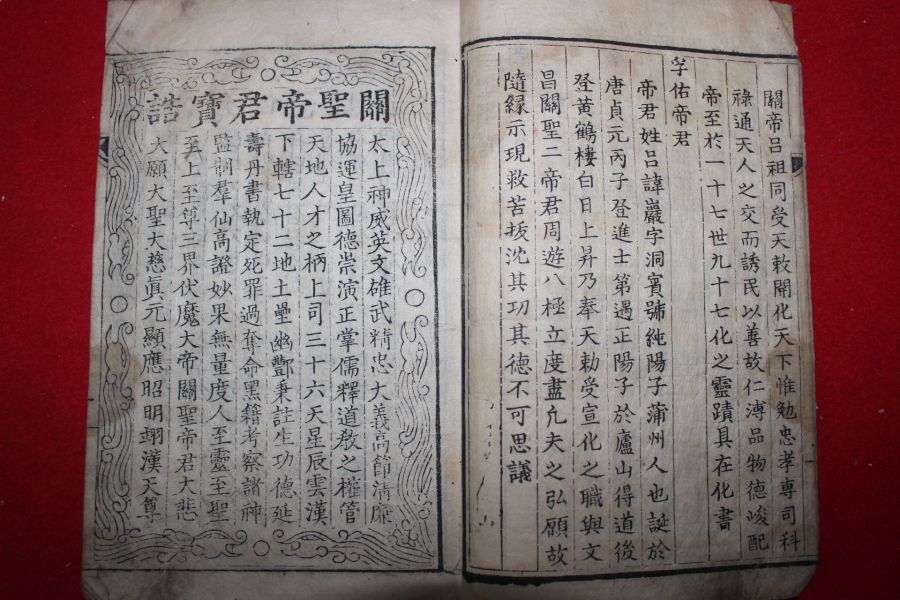 關帝呂祖同受天敕開化天下惟勉忠孝專司科
祿通天人之交而誘民以善故仁溥品物德峻配
帝至於一十七世九十七化之靈蹟具在化書
孚佑帝君
帝君姓呂諱巖字洞賓號純陽子蒲州人也誕於
唐貞元丙子登進士第遇正陽子於廬山得道後
登黃鶴樓白日上昇乃奉天勅受宣化之職與文
昌關聖二帝君周遊八極立度盡凡夫之弘願故
隨緣示現救苦拔沈其功其德不可思議
關聖帝君寶誥
太上神威英文雄武精忠大義高節清廉
協運皇圖德崇演正掌儒釋道敎之權管
天地人才之柄上司三十六天星辰雲漢
下轄七十二地土壘幽酆秉註生功德延
壽丹書執定死罪過奪命黑籍考察諸神
監制羣仙高證妙果無量度人至靈至聖
至上至尊三界伏魔大帝關聖帝君大悲
大願大聖大慈眞元顯應昭明翊漢天尊